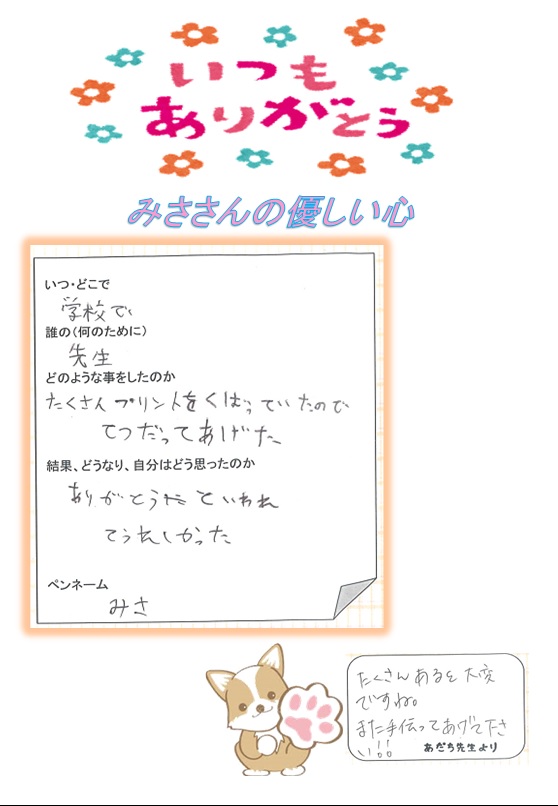 いつも
ありがとう
みささんの優しい心
いつ・どこで
学校で、
誰の(何のために)
先生
どのような事をしたのか
たくさん プリントをくばっていたので
てつだってあげた
結果、どうなり、自分はどう思ったのか
ありがとうだ ていわれ
てうれしかった
ペンネーム
みさ
たくさんあると大変
ですね。
また手伝ってあげて下さ
い!!
あだち先生より